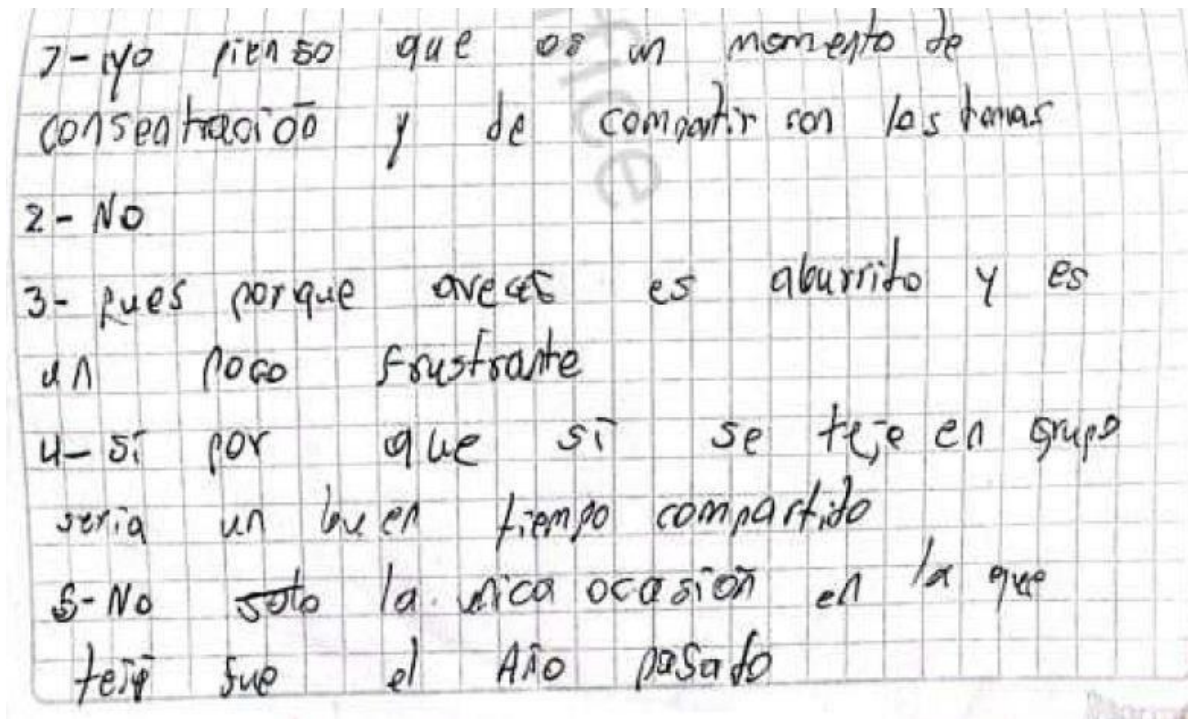 1-yo pienso que es un momento de
consentración y de compartir con los temas
2- No
3- pues porque aveces es aburrito y es
un poco frustrante
4- si por que si se teje en grupo
seria un buen tiempo compartido
5- No solo la unica ocasión en la que
teji fue el Año pasado